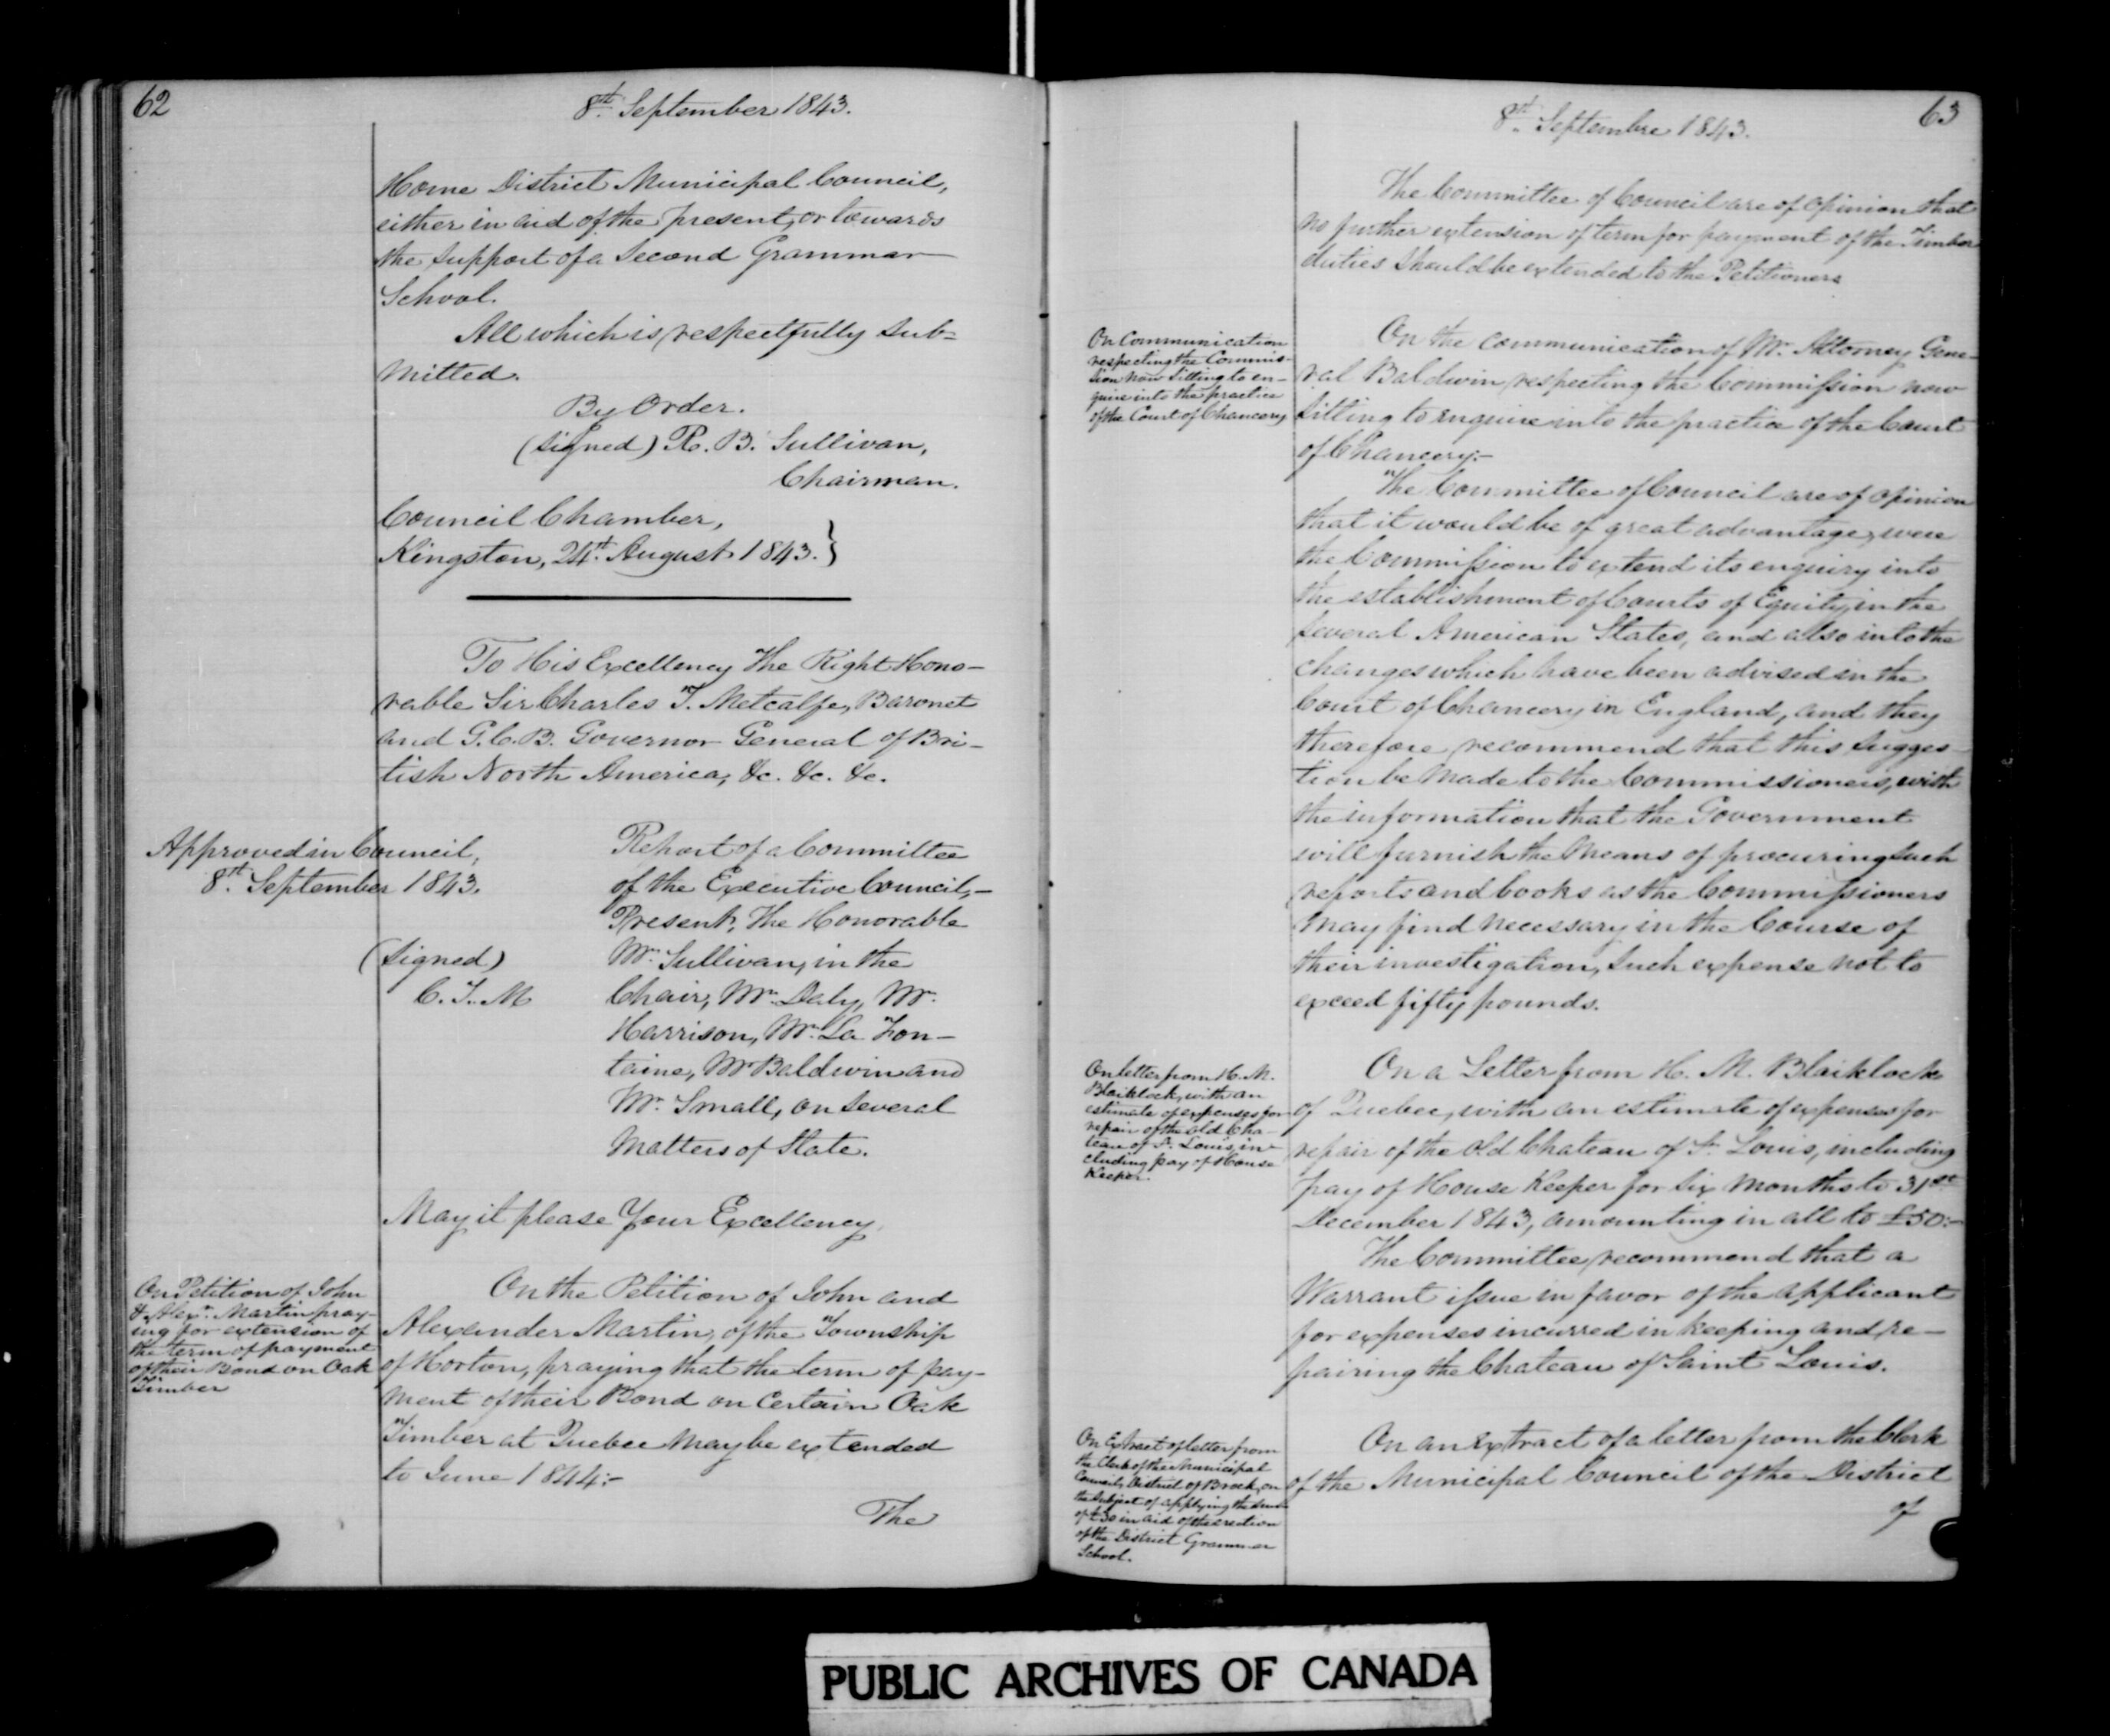 62
8th September 1843.
Home District Municipal Council,
either in aid of the present, or towards
the support of a Second Grammar
School.
All which is respectfully sub=
mitted.
By Order.
(signed) R. B. Sullivan,
Chairman.
Council Chamber,
Kingston, 24th August 1843. }
To His Excellency The Right Hono-
rable Sir Charles T. Metcalfe, Baronet
and G.C.B. Governor General of Bri-
tish North America, &c. &c. &c.
Approved in Council,
8th September 1843.
(signed)
C. T. M
Report of a Committee
of the Executive Council,-
Present, The Honorable
Mr. Sullivan, in the
Chair, Mr. Daly, Mr.
Harrison, Mr. La Fon-
taine, Mr Baldwin and
Mr. Small, on several
Matters of State.
May it please Your Excellency,
On Petition of John
& Alexr. Martin pray-
ing for extension of
the term of payment
of their Bond on Oak
Timber
On the Petition of John and
Alexander Martin, of the Township
of Horton, praying that the term of pay-
ment of their Bond on Certain Oak
Timber at Quebec may be extended
to June 1844:-
The
63
8th Septembre 1843.
The Committee of Council are of opinion that
no further extension of term for payment of the Timber
duties should be extended to the Petitioners
On Communication
respecting the Commis-
sion now sitting to en-
quire into the practice
of the Court of Chancery
On the communication of Mr. Attorney Gene-
ral Baldwin respecting the Commission now
sitting to enquire into the practice of the Court
of Chancery:-
The Committee of Council are of opinion
that it would be of great advantage, were
the Commission to extend its enquiry into
the establishment of Courts of Equity in the
several American States, and also into the
changes which have been advised in the
Court of Chancery in England, and they
therefore recommend that this sugges-
tion be made to the Commissioners, with
the information that the Government
will furnish the means of procuring such
reports and books as the Commissioners
may find necessary in the Course of
their investigation, such expense not to
exceed fifty pounds.
On letter from H. M.
Blaiklock, with an
estimate of expenses for
repair of the old Cha-
teau of St. Louis, in-
cluding pay of House
Keeper.
On a Letter from H. M. Blaiklock
of Quebec, with an estimate of expenses for
repair of the old Chateau of St. Louis, including
pay of House Keeper for six months to 31st
December 1843, amounting in all to £50:-
The Committee recommend that a
Warrant issue in favor of the applicant
for expenses incurred in keeping and re-
pairing the Chateau of Saint Louis.
On Extract of letter from
the Clerk of the Municipal
Council, District of Brock, on
the subject of applying the sum
of £30 in aid of the erection
of the District Grammar
School.
On an Extract of a letter from the Clerk
of the Municipal Council of the District
of
PUBLIC ARCHIVES OF CANADA